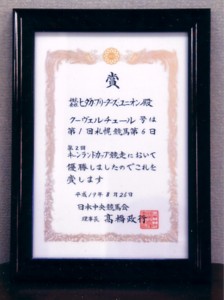 賞
株式会社 七夕ブリーダーズ・ユニオン殿
クーヴェルチュール号は
第1回札幌競馬第6日
第2回
キーンランドカップ競走において
優勝しましたのでこれを
賞します
平成19年8月26日
日本中央競馬会
理事長 髙橋政行